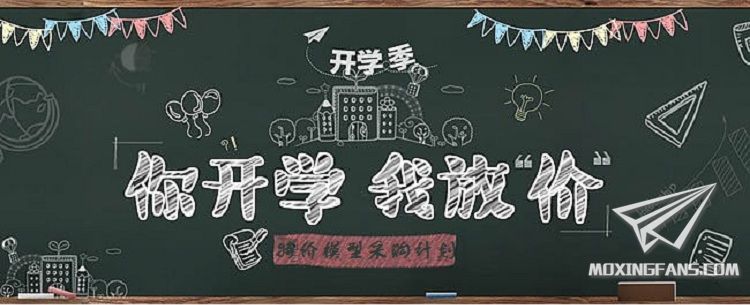 开学季
你开学 我放"价"
降价模型采购计划
MOXINGFANS.COM
开学